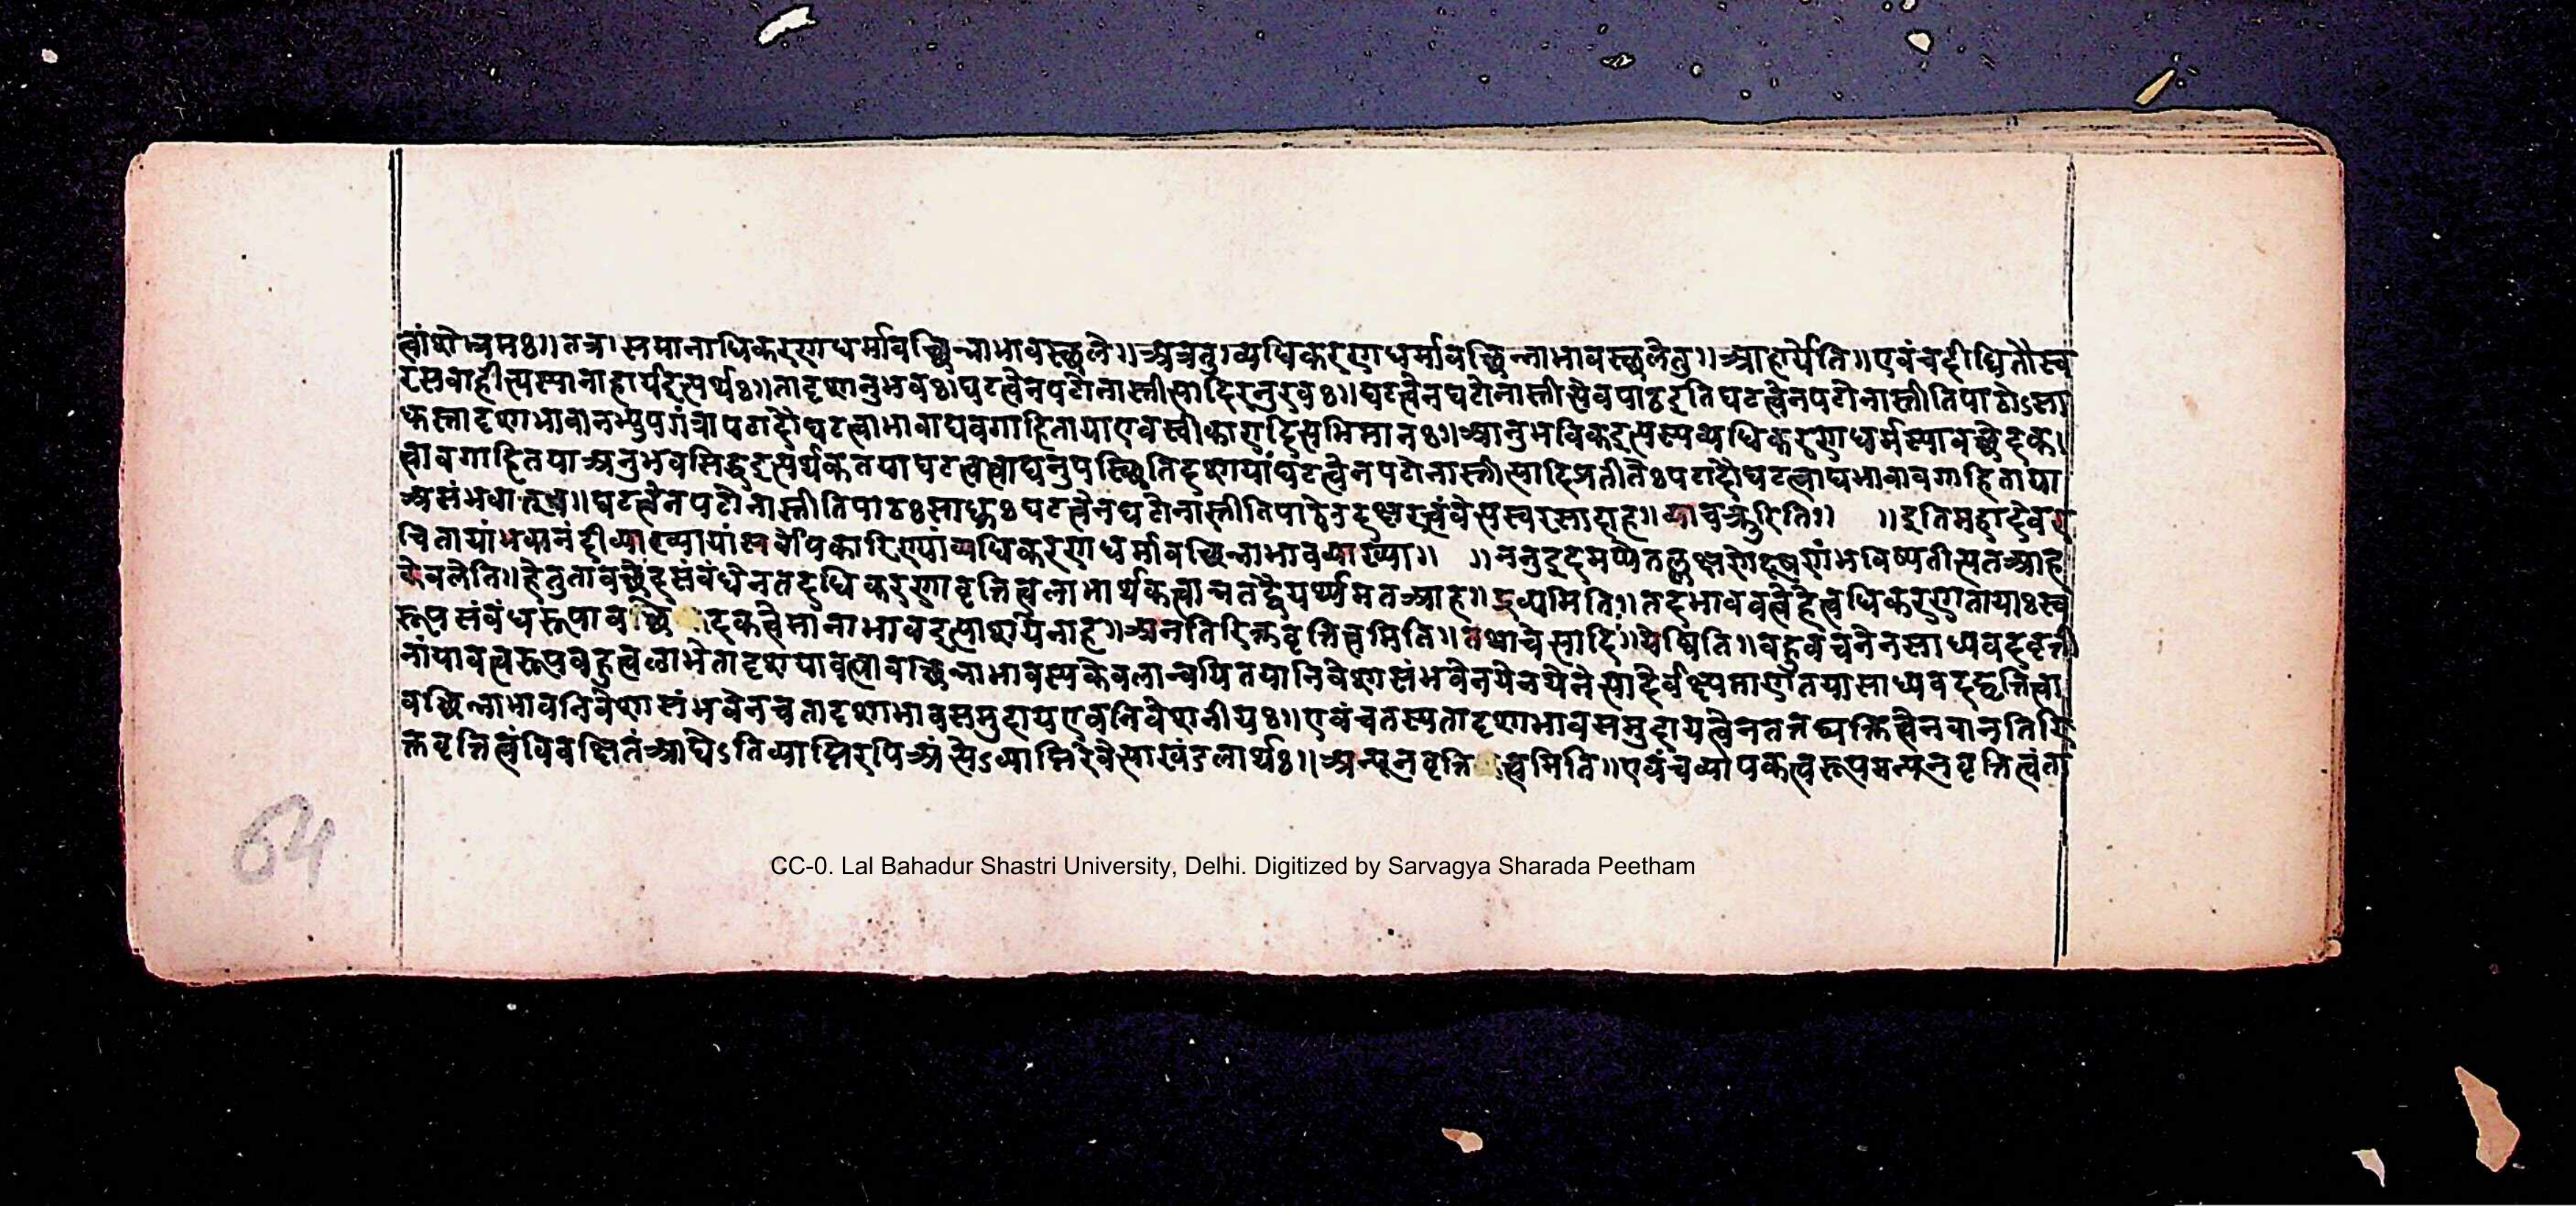 त्वांशेभ्रमः॥तत्र।समानाधिकरणधर्मावच्छिन्नाभावस्छले॥अत्रतु।व्यधिकरणधर्मावच्छिन्नाभावस्छलेतु॥आहार्येति॥एवंचदीधितौस्व
रसवाहीत्यस्यानाहार्यइत्यर्थः॥तादृशानुभवः।घटत्वेनपटोनास्तीत्यादिरनुरवः॥घटत्वेनघटोनास्तीत्येवपाठइति घटत्वेनपटोनास्तीतिपाठोऽसा
धुस्तादृशाभावानभ्युपगंत्रापटादौघटत्वाभावाद्यवगाहितायाएवस्वीकारादित्यभिमानः॥आनुभविकइत्यस्यव्यधिकरणधर्मस्यावच्छेदक
त्वावगाहितयाअनुभवसिद्धइत्यर्थकतयाघटत्वत्वाद्यनुपस्छितिदशायांघटत्वेनपटोनास्तीत्यादिप्रतीतेःपटादौघटत्वाद्यभावावगाहिताया
असंभवात्॥घटत्वेनपटोनास्तीतिपाठःसाधुःघटत्वेनघटोनास्तीतिपाठे स्वरसादाह॥ इतिमहादेवर
चितायांभवानंदीव्याख्यायांसर्वोपकारिण्यांव्यधिकरणधर्मावच्छिन्नाभावव्याख्या॥ ॥ननुइदमप्येतल्लक्षणेदूषणंभविष्यतीत्यतआह
केवलेति॥हेतुतावच्छेदसंबंधेनतदधिकरणावृत्तित्वलाभार्थकत्वान्नतद्वैयर्थ्यमतआह॥द्रव्यमिति॥तदभाववत्वेहेत्वधिकरणतायाःस्व
रूपसंबंधरूपावच्छे दकत्वेमानाभावइत्याशयेनाह॥अनतिरिक्तवृत्तित्वमिति॥तथाचेत्यादि॥येष्विति॥बहुवचनेनसाध्यवदवृत्ती
नांयावत्वरूपबहुत्वलाभेतादृशयावत्वावच्छिन्नाभावस्यकेवलान्वयितयानिवेशासंभवेनयेनयेनेत्यादेर्वक्ष्यमाणतयासाध्यवदवृत्तित्वा
वच्छिन्नाभावनिवेशासंभवेनचतादृशाभावसमुदायएवनिवेशनीयः॥एवंचतस्यतादृशाभावसमुदायत्वेनतत्तद्व्यक्तित्वेनवानतिरि
क्तवृत्तित्वंविवक्षितंआद्येऽतिव्याप्तिरपिअंत्येऽव्याप्तिरेवेत्याखंडलार्थः॥अन्यूनवृत्ति त्वमिति॥एवंचव्यापकत्वरूपमन्यूनवृत्तित्वंता
64
CC-0. Lal Bahadur Shastri University, Delhi. Digitized by Sarvagya Sharada Peetham